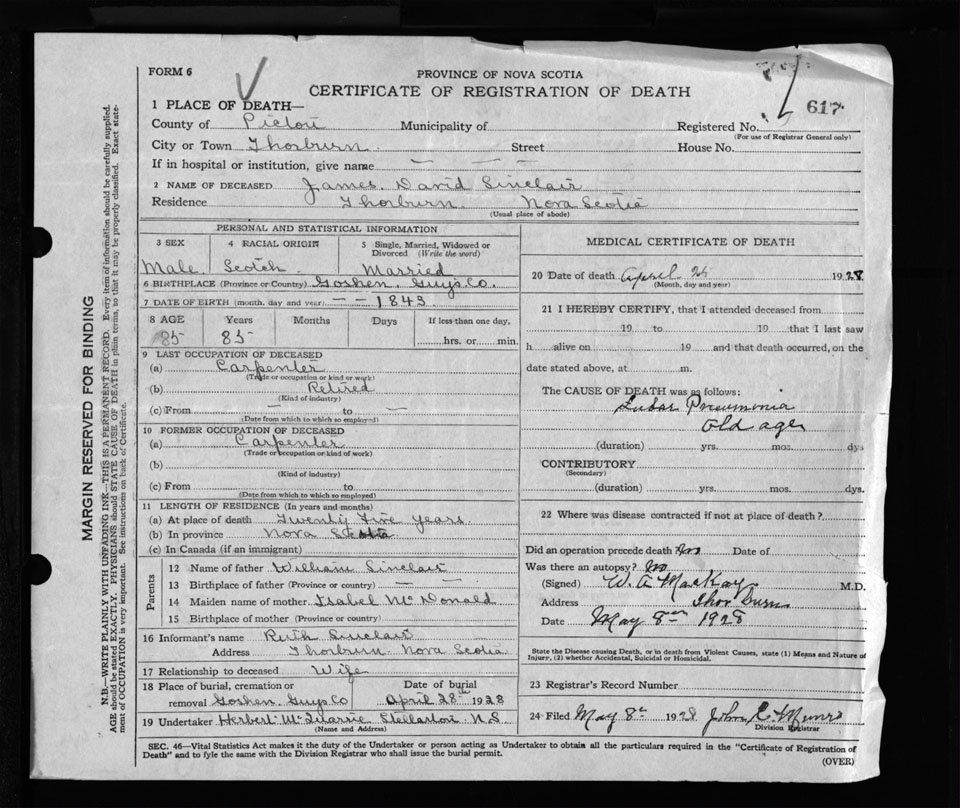 FORM 6
PROVINCE OF NOVA SCOTIA
CERTIFICATE OF REGISTRATION OF DEATH
617
1 PLACE OF DEATH—
County of Pictou Municipality of Registered No.
(For use of Registrar General only)
City or Town Thorburn Street House No.
If in hospital or institution, give name — — —
2 NAME OF DECEASED James David Sinclair
Residence Thorburn Nova Scotia
(Usual place of abode)
PERSONAL AND STATISTICAL INFORMATION
3 SEX 4 RACIAL ORIGIN 5 Single, Married, Widowed or Divorced (Write the word)
Male Scotch Married
6 BIRTHPLACE (Province or Country) Goshen Guys. Co.
7 DATE OF BIRTH (month, day and year) — — 1843
8 AGE Years Months Days If less than one day,
85 85 hrs. or min.
9 LAST OCCUPATION OF DECEASED
(a) Carpenter
(Trade or occupation or kind or work)
(b) Retired
(Kind of industry)
(c) From — to —
(Date from which to which so employed)
10 FORMER OCCUPATION OF DECEASED
(a) Carpenter
(Trade or occupation or kind of work)
(b)
(Kind of industry)
(c) From to
(Date from which to which so employed)
11 LENGTH OF RESIDENCE (In years and months)
(a) At place of death Twenty Five years
(b) In province Nova Scotia
(c) In Canada (if an immigrant)
Parents
12 Name of father William Sinclair
13 Birthplace of father (Province or country) — —
14 Maiden name of mother Isabel McDonald
15 Birthplace of mother (Province or country)
16 Informant's name Ruth Sinclair
Address Thorburn Nova Scotia
17 Relationship to deceased Wife
18 Place of burial, cremation or Date of burial
removal Goshen Guys Co April 28th 1928
19 Undertaker Herbert McQuarrie Stellarton N.S.
(Name and Address)
MEDICAL CERTIFICATE OF DEATH
20 Date of death April 25 1928
(Month, day and year)
21 I HEREBY CERTIFY, that I attended deceased from
19 to 19 that I last saw
h alive on 19 and that death occurred, on the
date stated above, at m.
The CAUSE OF DEATH was as follows:
Lobar Pneumonia
Old age
(duration) yrs. mos. dys
CONTRIBUTORY
(Secondary)
(duration) yrs. mos. dys.
22 Where was disease contracted if not at place of death?
Did an operation precede death? No Date of
Was there an autopsy? No
(Signed) W. A MacKay M.D.
Address Thorburn
Date May 8th 1928
State the Disease causing Death, or in death from Violent Causes, state (1) Means and Nature of
Injury, (2) whether Accidental, Suicidal or Homicidal.
23 Registrar's Record Number
24 Filed May 8th 1928 John C. Munro
Division Registrar
SEC. 46—Vital Statistics Act makes it the duty of the Undertaker or person acting as Undertaker to obtain all the particulars required in the "Certificate of Registration of
Death" and to fyle the same with the Division Registrar who shall issue the burial permit.
(OVER)
MARGIN RESERVED FOR BINDING
N.B.—WRITE PLAINLY WITH UNFADING INK—THIS IS A PERMANENT RECORD. Every item of information should be carefully supplied.
AGE should be stated EXACTLY. PHYSICIANS should STATE CAUSE OF DEATH in plain terms, so that it may be properly classified. Exact state-
ment of OCCUPATION is very important. See instructions on back of Certificate.